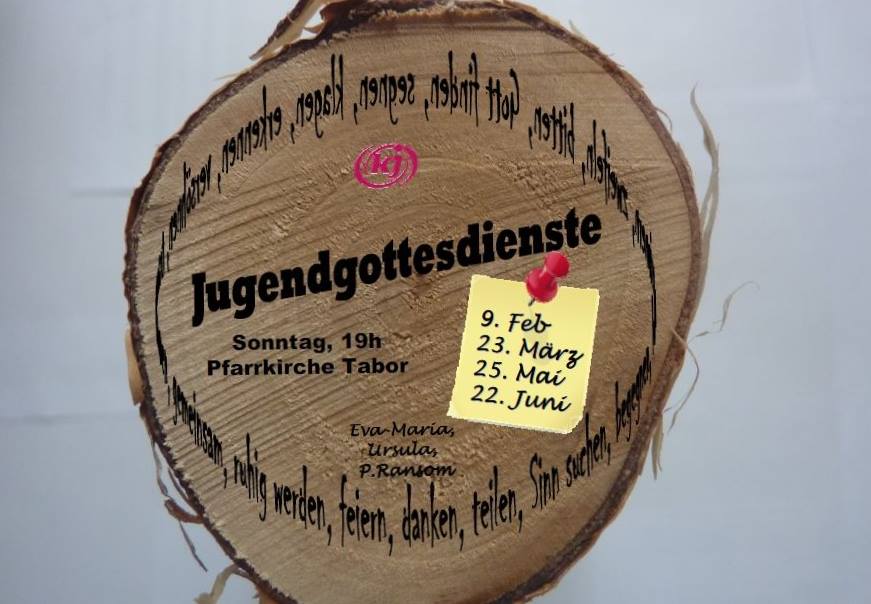 kj
Jugendgottesdienste
Sonntag, 19h
Pfarrkirche Tabor
9. Feb
23. März
25. Mai
22. Juni
Eva-Maria,
Ursula,
P.Ransom
gemeinsam, ruhig werden, feiern, danken, teilen, Sinn suchen, begegnen,
zweifeln, bitten, Gott finden, segnen, klagen, erkennen, versöhnen,